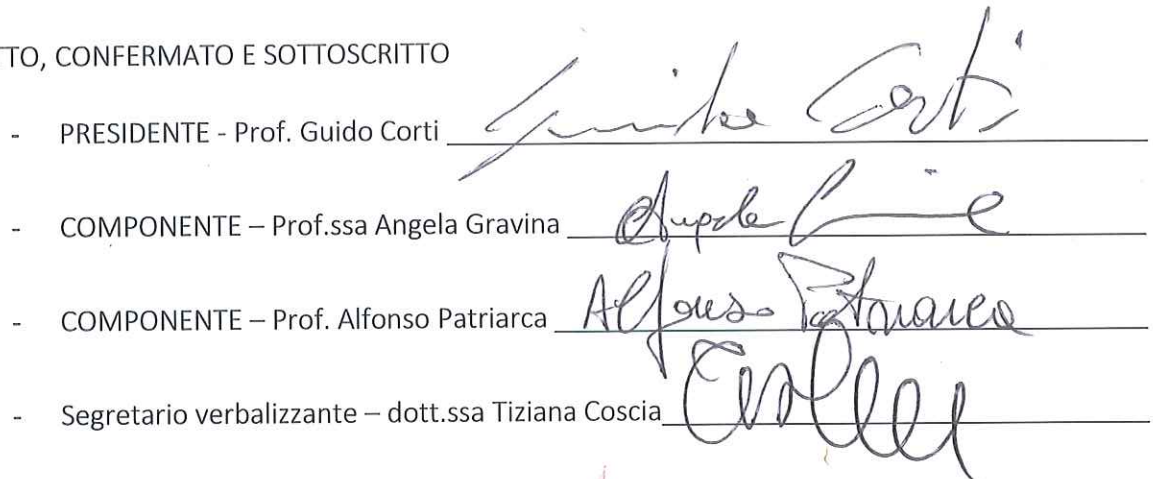 TTO, CONFERMATO E SOTTOSCRITTO
- PRESIDENTE - Prof. Guido Corti Guido Corti
- COMPONENTE – Prof.ssa Angela Gravina Angela
- COMPONENTE – Prof. Alfonso Patriarca Alfonso Patriarca
- Segretario verbalizzante – dott.ssa Tiziana Coscia